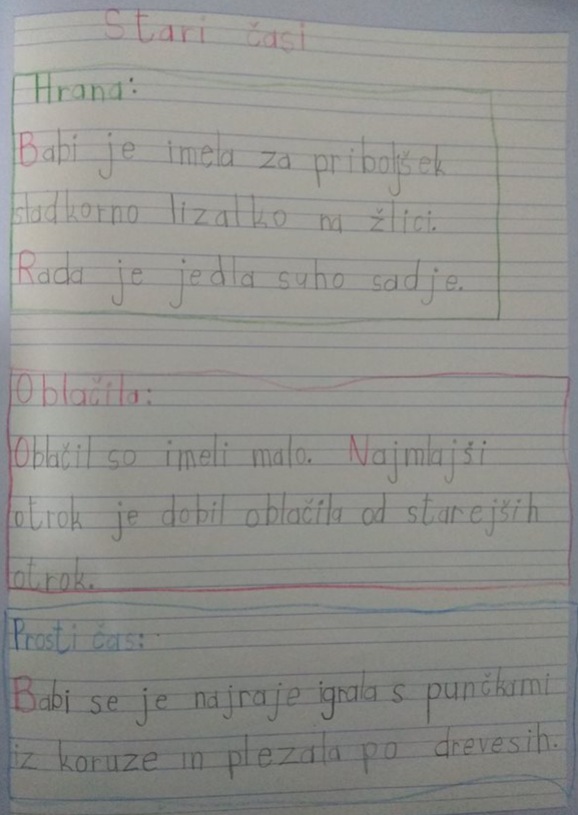 Stari časi
Hrana:
Babi je imela za priboljšek
sladkorno lizalko na žlici.
Rada je jedla suho sadje.
Oblačila:
Oblačil so imeli malo. Najmlajši
otrok je dobil oblačila od starejših
otrok.
Prosti čas:
Babi se je najraje igrala s punčkami
iz koruze in plezala po drevesih.